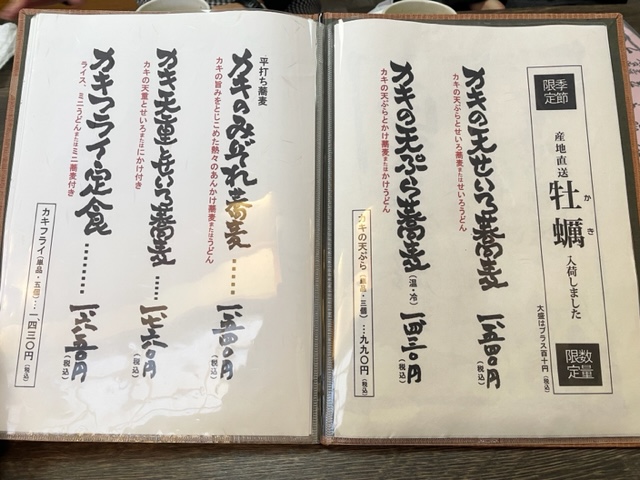 季節限定
産地直送
牡蠣
かき
入荷しました
数量限定
大盛はプラス百十円(税込)
カキの天せいろ蕎麦 一、五四〇円(税込)
カキの天ぷらとせいろ蕎麦またはせいろうどん
カキの天ぷら蕎麦(温・冷) 一、四三〇円(税込)
カキの天ぷらとかけ蕎麦またはかけうどん
カキの天ぷら(単品・三個)…九九〇円(税込)
平打ち蕎麦
カキのみぞれ蕎麦……… 一、五四〇円(税込)
カキの旨みをとじこめた熱々のあんかけ蕎麦またはうどん
カキ天重とせいろ蕎麦…… 一、七六〇円(税込)
カキの天重とせいろまたはにかけ付き
カキフライ定食……… 一、六五〇円(税込)
ライス、ミニうどんまたはミニ蕎麦付き
カキフライ(単品・五個)…一、四三〇円(税込)